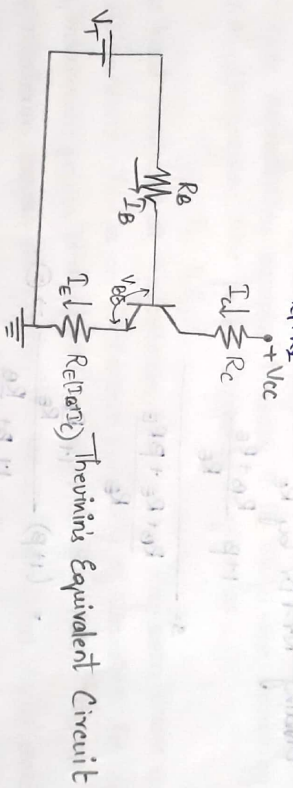 + Vcc
Ic
Rc
RB
IB
VBE
VT
IE
RE(IB+Ic)
Thevinin's Equivalent Circuit